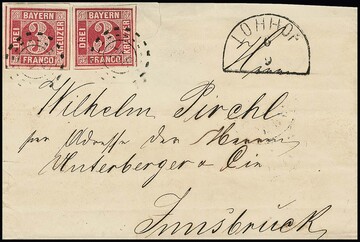 BAYERN
DREI 3 KREUZER
FRANCO
BAYERN
DREI 3 KREUZER
FRANCO
LOHHOF
9
Wilhelm Pirchl
per Adresse der Herren
Unterberger & Cie
Innsbruck